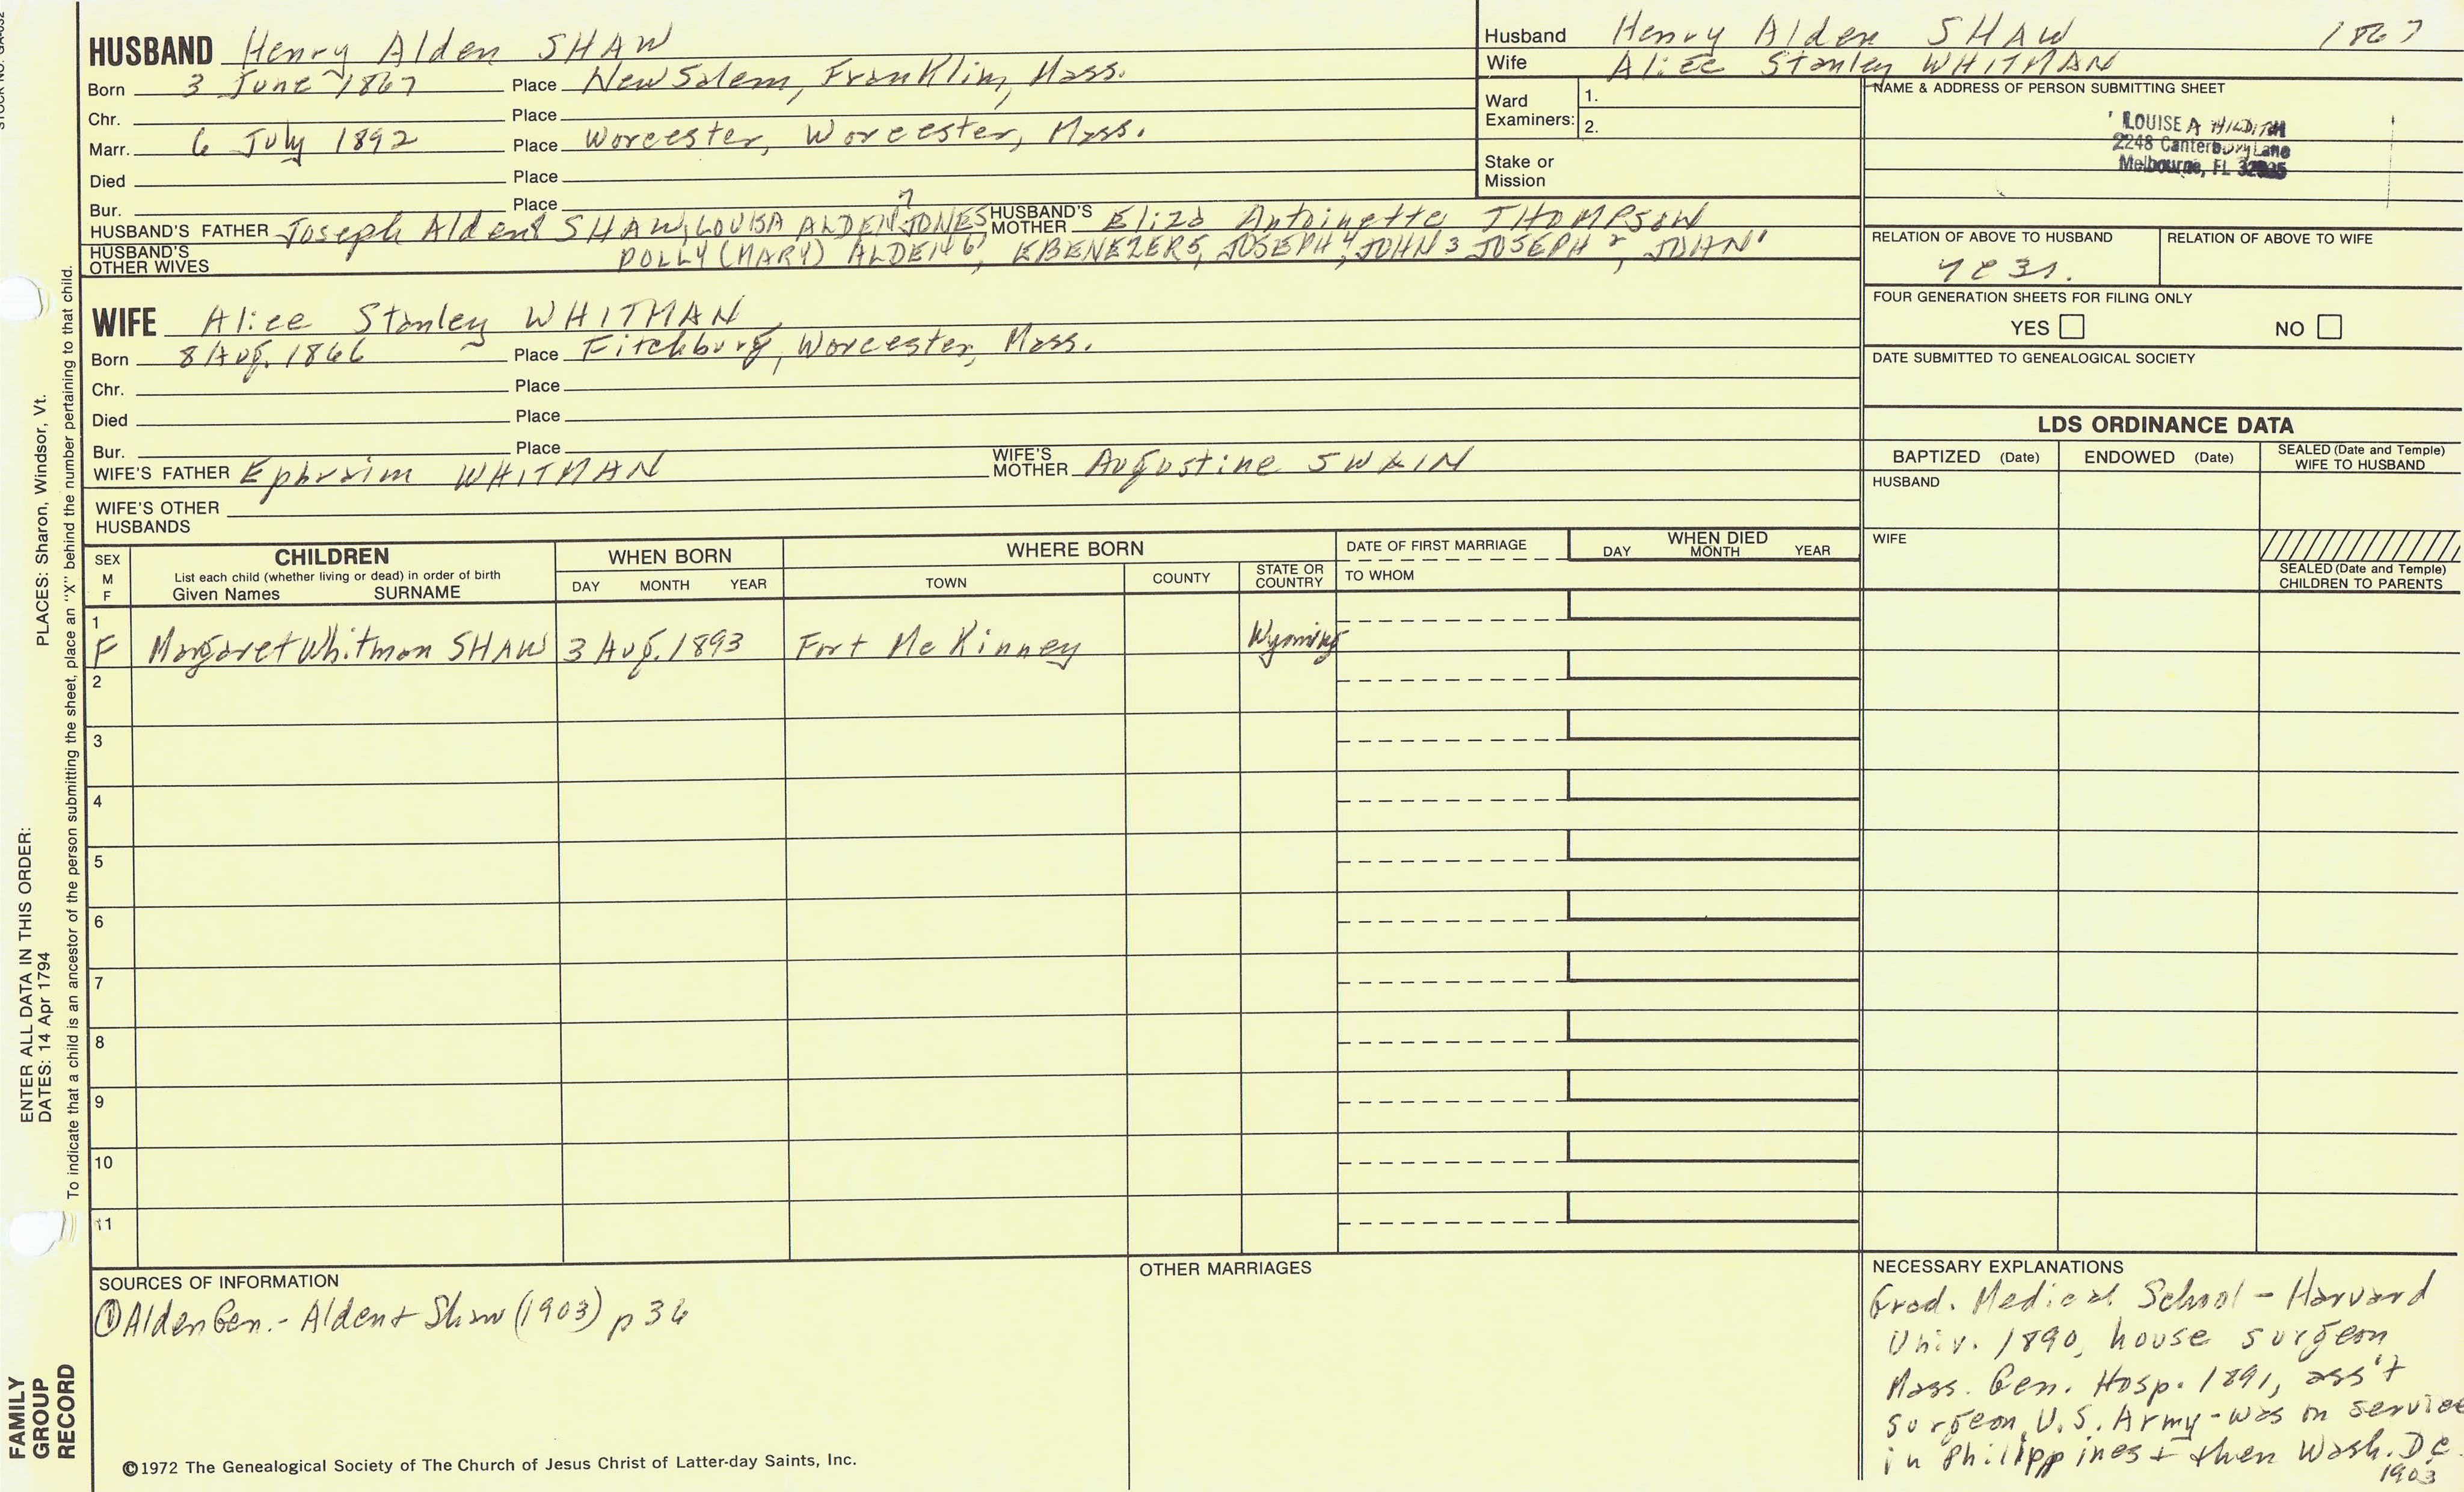 HUSBAND Henry Alden SHAW
Born 3 June 1867 Place New Salem, Franklin, Mass.
Chr. Place
Marr. 6 July 1892 Place Worcester, Worcester, Mass.
Died Place
Bur. Place
HUSBAND'S FATHER Joseph Alden SHAW, LOUISA ALDEN 7 JONES HUSBAND'S MOTHER Eliza Antoinette THOMPSON
HUSBAND'S OTHER WIVES POLLY (MARY) ALDEN 6, EBENEZER 5, JOSEPH 4, JOHN 3 JOSEPH 2, JOHN 1
Husband Henry Alden SHAW 1867
Wife Alice Stanley WHITMAN
Ward Examiners: 1.
2.
Stake or Mission
NAME & ADDRESS OF PERSON SUBMITTING SHEET
LOUISE A HILDITH
2248 Canterbury Lane
Melbourne, FL
RELATION OF ABOVE TO HUSBAND RELATION OF ABOVE TO WIFE
FOUR GENERATION SHEETS FOR FILING ONLY
YES NO
DATE SUBMITTED TO GENEALOGICAL SOCIETY
WIFE Alice Stanley WHITMAN
Born 8 Aug. 1866 Place Fitchburg, Worcester, Mass.
Chr. Place
Died Place
Bur. Place
WIFE'S FATHER Ephraim WHITMAN WIFE'S MOTHER Augustine SWAIN
WIFE'S OTHER HUSBANDS
LDS ORDINANCE DATA
BAPTIZED (Date) ENDOWED (Date) SEALED (Date and Temple) WIFE TO HUSBAND
HUSBAND
WIFE
SEALED (Date and Temple) CHILDREN TO PARENTS
SEX M F
CHILDREN
List each child (whether living or dead) in order of birth
Given Names SURNAME
WHEN BORN
DAY MONTH YEAR
WHERE BORN
TOWN COUNTY STATE OR COUNTRY
DATE OF FIRST MARRIAGE
TO WHOM
WHEN DIED
DAY MONTH YEAR
1
F Margaret Whitman SHAW 3 Aug. 1893 Fort McKinney Wyoming
2
3
4
5
6
7
8
9
10
11
SOURCES OF INFORMATION
① Alden Gen. - Alden + Shaw (1903) p 36
OTHER MARRIAGES
NECESSARY EXPLANATIONS
Grad. Medical School - Harvard
Univ. 1890, house surgeon
Mass. Gen. Hosp. 1891, ass't
surgeon, U.S. Army - was in service
in Philippines + then Wash. DC
1903
©1972 The Genealogical Society of The Church of Jesus Christ of Latter-day Saints, Inc.
FAMILY
GROUP
RECORD
ENTER ALL DATA IN THIS ORDER:
DATES: 14 Apr 1794
PLACES: Sharon, Windsor, Vt.
To indicate that a child is an ancestor of the person submitting the sheet, place an "X" behind the number pertaining to that child.